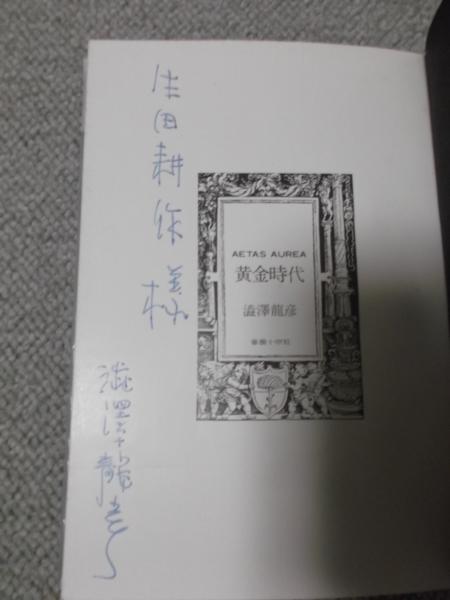 生田耕作様
澁澤龍彦
AETAS AUREA
黄金時代
澁澤龍彦
薔薇十字社